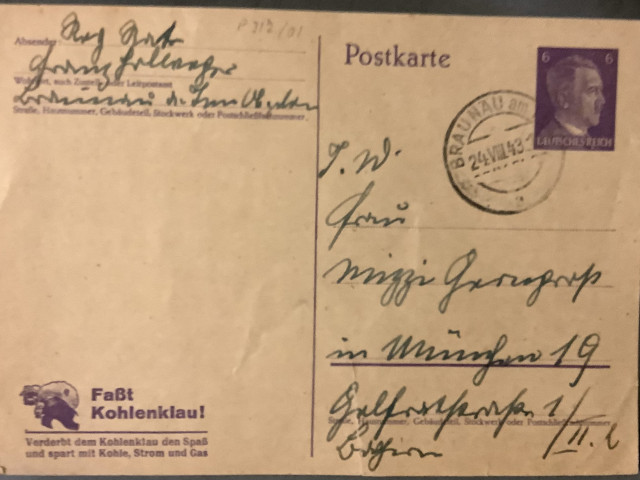 P 212/01
Absender:
Wohnort, auch Zustell- oder Leitpostamt
Braunau a. Inn
Straße, Hausnummer, Gebäudeteil, Stockwerk oder Postschließfachnummer
Faßt
Kohlenklau!
Verderbt dem Kohlenklau den Spaß
und spart mit Kohle, Strom und Gas
Postkarte
6 6
DEUTSCHES REICH
BRAUNAU am
24.VIII.43
a
Frau
Mizzi
in München 19
1/
II. l
Straße, Hausnummer, Gebäudeteil, Stockwerk oder Postschließfachnummer
Bayern